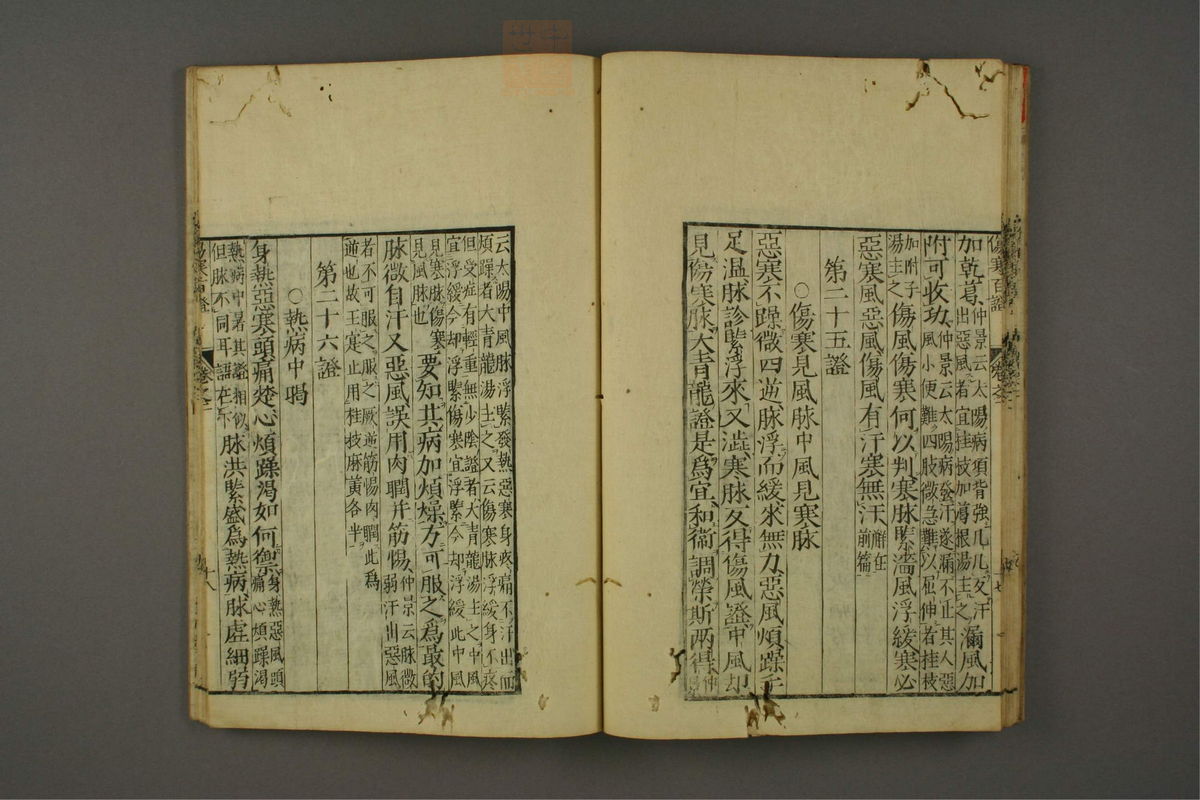 傷寒百證 卷之二 七
加乾葛仲景云太陽病項背強几几反汗出惡風者宜桂枝加葛根湯主之漏風加
附可收功仲景云太陽病發汗遂漏不止其人惡風小便難四肢微急難以屈伸者桂枝
加附子湯主之傷風傷寒何以判寒脉緊濇風浮緩寒必
惡寒風惡風傷風有汗寒無汗解在前篇
第二十五證
○傷寒見風脉中風見寒脉
惡寒不躁微四逆脉浮而緩來無力惡風煩躁手
足溫脉診緊浮來又澁寒脉反得傷風證中風却
見傷寒脉大青龍證是爲宜和衞調榮斯兩得仲景
云太陽中風脉浮緊發熱惡寒身疼痛不汗出而煩躁者大青龍湯主之又云傷寒脉浮緩身不疼
但受症有輕重無少陰證者大青龍湯主之中風宜浮緩今却浮緊傷寒宜浮緊今却浮緩此中風
見寒脉傷寒見風脉也要知其病加煩燥方可服之爲最的
脉微自汗又惡風誤用肉瞤并筋惕仲景云脉微弱汗出惡風
者不可服之服之厥逆筋惕肉瞤此爲逆也故王寔止用桂枝麻黃各半
第二十六證
○熱病中暍
身熱惡寒頭痛楚心煩躁渴如何禦身熱惡風頭痛心煩躁渴
熱病中暑其證相似但脉不同耳語在下脉洪緊盛爲熱病脉虛細弱
傷寒百證 卷之二 八